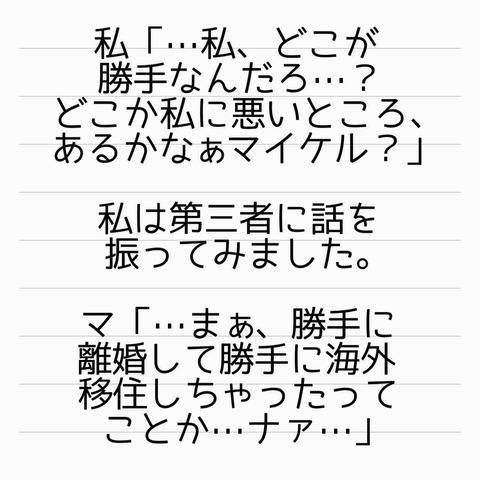 私「…私、どこが
勝手なんだろ…？
どこか私に悪いところ、
あるかなぁマイケル？」
私は第三者に話を
振ってみました。
マ「…まぁ、勝手に
離婚して勝手に海外
移住しちゃったって
ことか…ナァ…」